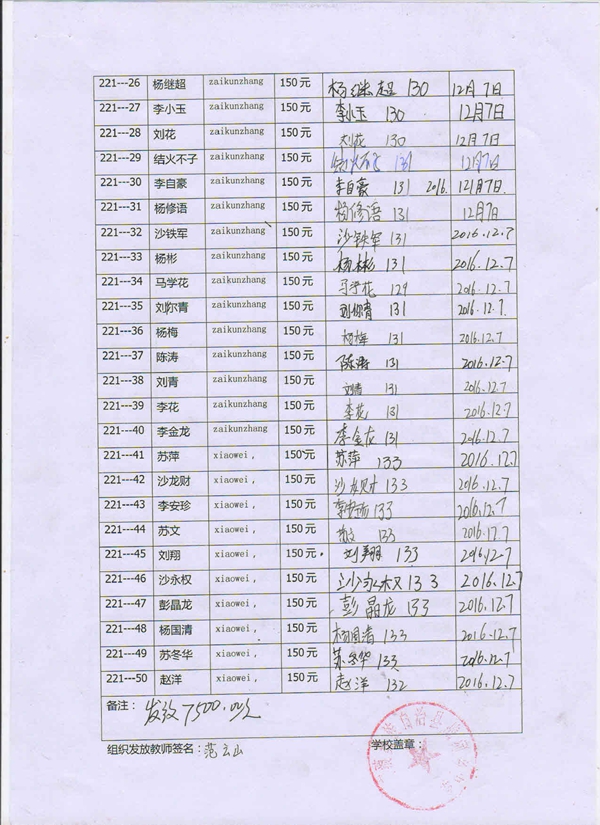 221---26 杨继超 zaikunzhang 150元 杨继超 130 12月7日
221---27 李小玉 zaikunzhang 150元 李小玉 130 12月7日
221---28 刘花 zaikunzhang 150元 刘花 130 12月7日
221---29 结火不子 zaikunzhang 150元 结火不子 131 12月7日
221---30 李自豪 zaikunzhang 150元 李自豪 131 2016. 12月7日.
221---31 杨修语 zaikunzhang 150元 杨修语 131 12月7日
221---32 沙铁军 zaikunzhang 150元 沙铁军 131 2016.12.7
221---33 杨彬 zaikunzhang 150元 杨彬 131 2016.12.7
221---34 马学花 zaikunzhang 150元 马学花 129 2016.12.7
221---35 刘尔青 zaikunzhang 150元 刘尔青 131 2016.12.7.
221---36 杨梅 zaikunzhang 150元 杨梅 131 2016.12.7
221---37 陈涛 zaikunzhang 150元 陈涛 131 2016.12.7
221---38 刘青 zaikunzhang 150元 刘青 131 2016.12.7
221---39 李花 zaikunzhang 150元 李花 131 2016.12.7
221---40 李金龙 zaikunzhang 150元 李金龙 131 2016.12.7
221---41 苏萍 xiaowei, 150元 苏萍 133 2016.12.7
221---42 沙龙财 xiaowei, 150元 沙龙财 133 2016.12.7
221---43 李安珍 xiaowei, 150元 133 2016.12.7
221---44 苏文 xiaowei, 150元 苏文 133 2016.12.7
221---45 刘翔 xiaowei, 150元 刘翔 133 2016.12.7
221---46 沙永权 xiaowei, 150元 沙永权 133 2016.12.7
221---47 彭晶龙 xiaowei, 150元 彭晶龙 133 2016.12.7
221---48 杨国清 xiaowei, 150元 杨国清 133 2016.12.7
221---49 苏冬华 xiaowei, 150元 苏冬华 133 2016.12.7
221---50 赵洋 xiaowei, 150元 赵洋 132 2016.12.7
备注： 发放7500.00元
组织发放教师签名：范云山 学校盖章：
自治县